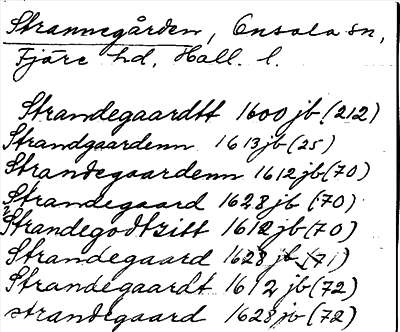 Strannegården, Onsala sn,
Fjäre hd, Hall. l.
Strandegaardtt 1600 jb (212)
Strandgaardenn 1613 jb (25)
Strandegaardenn 1612 jb (70)
Strandegaard 1628 jb (70)
? Strandegodtzitt 1612 jb (70)
Strandegaard 1628 jb (71)
Strandegaardt 1612 jb (72)
strandegaard 1628 jb (72)